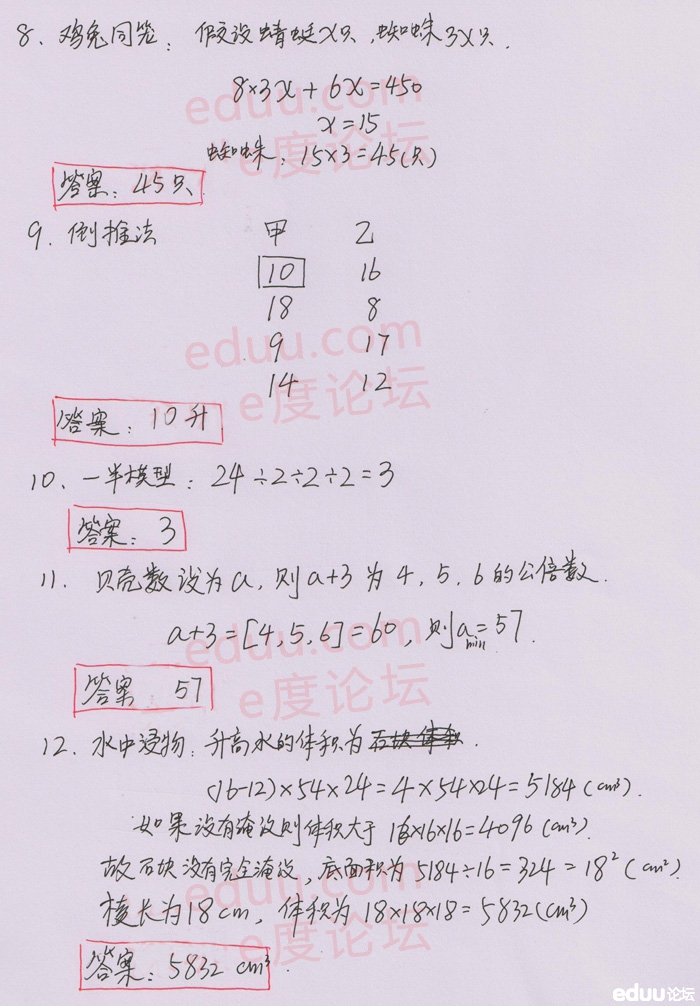 8、鸡兔同笼：假设蜻蜓x只，蜘蛛3x只.
8×3x+6x=450
x=15
蜘蛛：15×3=45(只)
答案：45只
9、倒推法 甲 乙
10 16
18 8
9 17
14 12
答案：10升
10、一半模型：24÷2÷2÷2=3
答案：3
11、贝壳数设为a，则a+3为4，5，6的公倍数.
a+3=[4,5,6]=60，则a min=57.
答案 57
12、水中浸物：升高水的体积为石块体积.
(16-12)×54×24=4×54×24=5184(cm³).
如果没有淹没则体积大于16×16×16=4096(cm³).
故石块没有完全淹没，底面积为5184÷16=324=18²(cm²)
棱长为18cm，体积为18×18×18=5832(cm³)
答案：5832 cm³.
eduu.com
e度论坛
eduu.com
e度论坛
eduu.com
e度论坛
eduu.com
e度论坛
eduu论坛